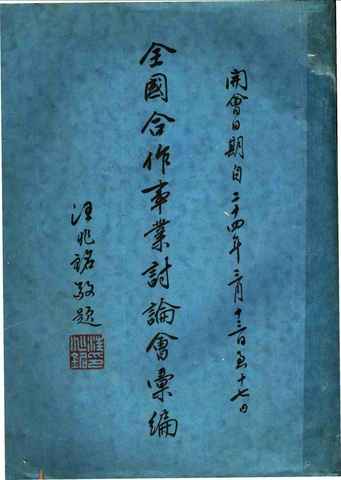 開會日期自二十四年三月十三日至十七日
全國合作事業討論會彙編
汪兆銘敬題
汪兆銘印